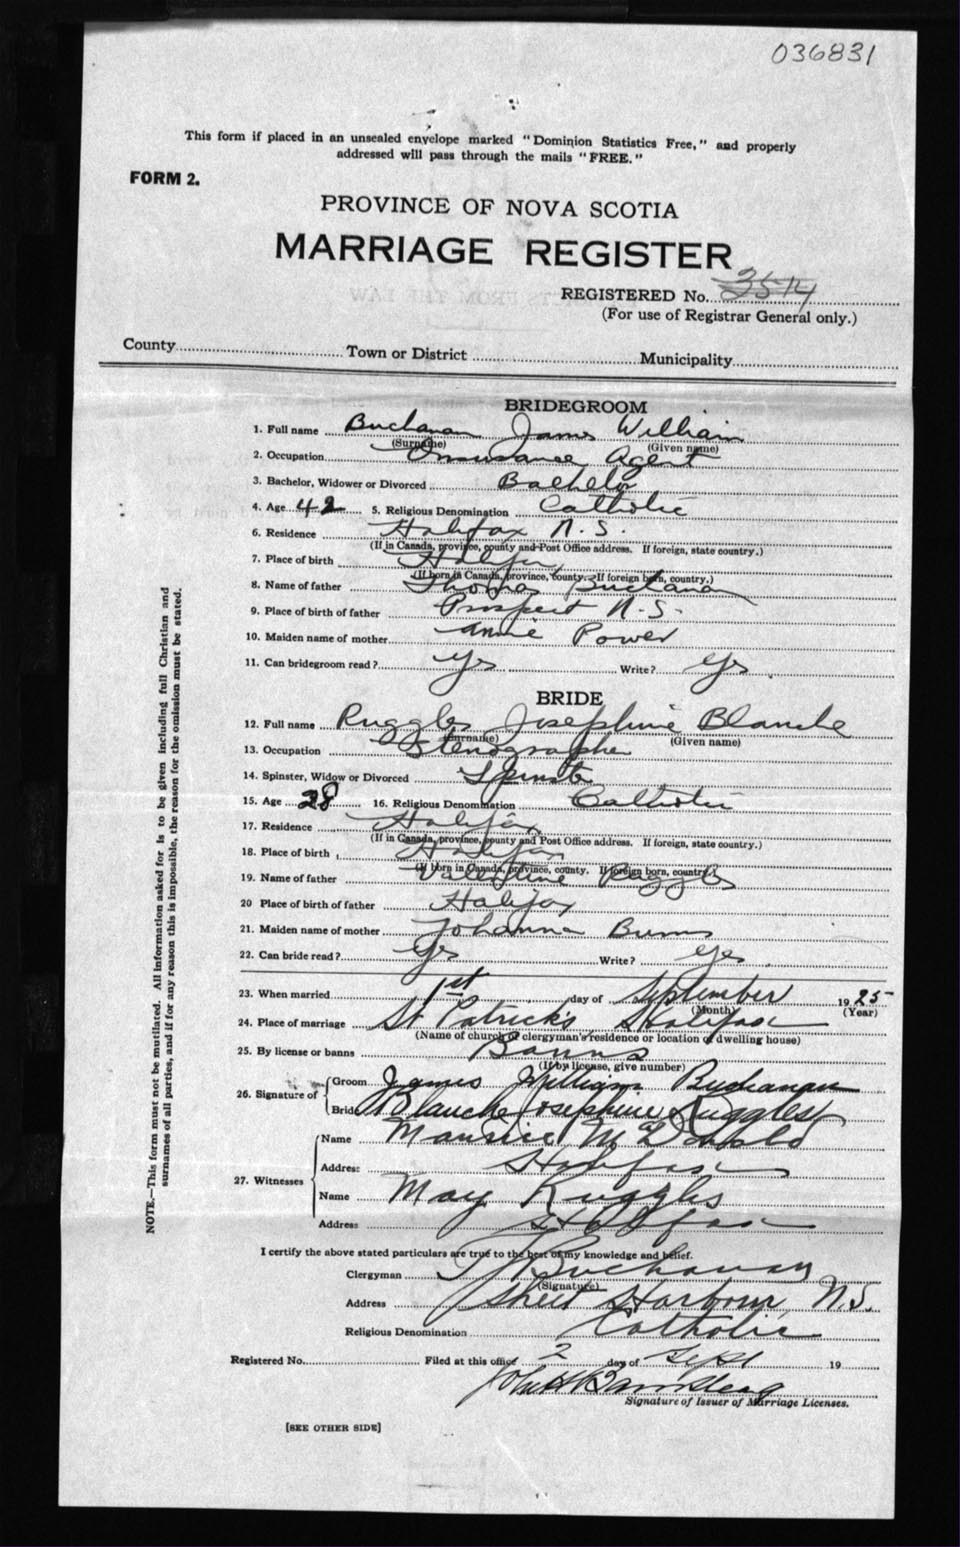 036831
This form if placed in an unsealed envelope marked "Dominion Statistics Free," and properly
addressed will pass through the mails "FREE."
FORM 2.
PROVINCE OF NOVA SCOTIA
MARRIAGE REGISTER
REGISTERED No. 3514
(For use of Registrar General only.)
County Town or District Municipality
BRIDEGROOM
1. Full name Buchanan James William
(Surname) (Given name)
2. Occupation Insurance Agent
3. Bachelor, Widower or Divorced Bachelor
4. Age 42 5. Religious Denomination Catholic
6. Residence Halifax N.S.
(If in Canada, province, county and Post Office address. If foreign, state country.)
7. Place of birth Halifax
(If born in Canada, province, county. If foreign born, country.)
8. Name of father Thomas Buchanan
9. Place of birth of father Prospect N.S.
10. Maiden name of mother Annie Power
11. Can bridegroom read? Yes Write? Yes
BRIDE
12. Full name Ruggles Josephine Blanche
(Surname) (Given name)
13. Occupation Stenographer
14. Spinster, Widow or Divorced Spinster
15. Age 28 16. Religious Denomination Catholic
17. Residence Halifax
(If in Canada, province, county and Post Office address. If foreign, state country.)
18. Place of birth Halifax
(If born in Canada, province, county. If foreign born, country.)
19. Name of father Valentine Ruggles
20 Place of birth of father Halifax
21. Maiden name of mother Johanna Burns
22. Can bride read? Yes Write? Yes
23. When married 1st day of September 1925
(Month) (Year)
24. Place of marriage St Patrick's Halifax
(Name of church or clergyman's residence or location of dwelling house)
25. By license or banns Banns
(If by license, give number)
26. Signature of Groom James William Buchanan
Bride Blanche Josephine Ruggles
27. Witnesses Name Maurice McDonald
Address Halifax
Name May Ruggles
Address Halifax
I certify the above stated particulars are true to the best of my knowledge and belief.
Clergyman T J Buchanan
(Signature)
Address Sheet Harbour N.S.
Religious Denomination Catholic
Registered No. Filed at this office 2 day of Sept 19
John
Signature of Issuer of Marriage Licenses.
[SEE OTHER SIDE]
NOTE.—This form must not be mutilated. All information asked for is to be given including full Christian and
surnames of all parties, and if for any reason this is impossible, the reason for the omission must be stated.